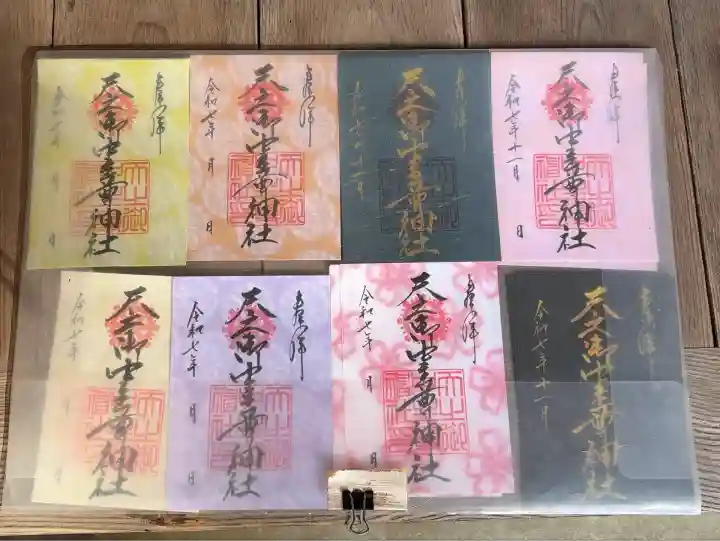 奉拝
天之御中主尊神社
令和七年
月
日
奉拝
天之御中主尊神社
令和七年
月
日
奉拝
天之御中主尊神社
令和七年十一月
奉拝
天之御中主尊神社
令和七年十一月
日
奉拝
天之御中主尊神社
令和七年
月
日
奉拝
天之御中主尊神社
令和七年
月
日
奉拝
天之御中主尊神社
令和七年
月
日
奉拝
天之御中主尊神社
令和七年十一月